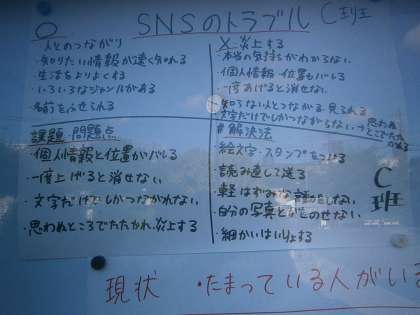 SNSのトラブル C班
○
人とのつながり
・知りたい情報が速く知れる
・生活をよりよくする
・いろいろなジャンルがある
・名前をふせられる
× 炎上する
・本当の気持ちがわからない
・個人情報・位置もバレる
・一度あげると消せない
・知らない人とつながる・見られる
・文字だけでしかつながらない
課題 問題点
・個人情報と位置がバレる
・一度上げると消せない
・文字だけでしかつながれない
・思わぬところでたたかれ炎上する
#解決法
・絵文字・スタンプをつける
・読み直して送る
・軽はずみな言動をしない
・自分の写真などのせない
・細かいはいりょする
C班
現状 ・たまっている人がいる